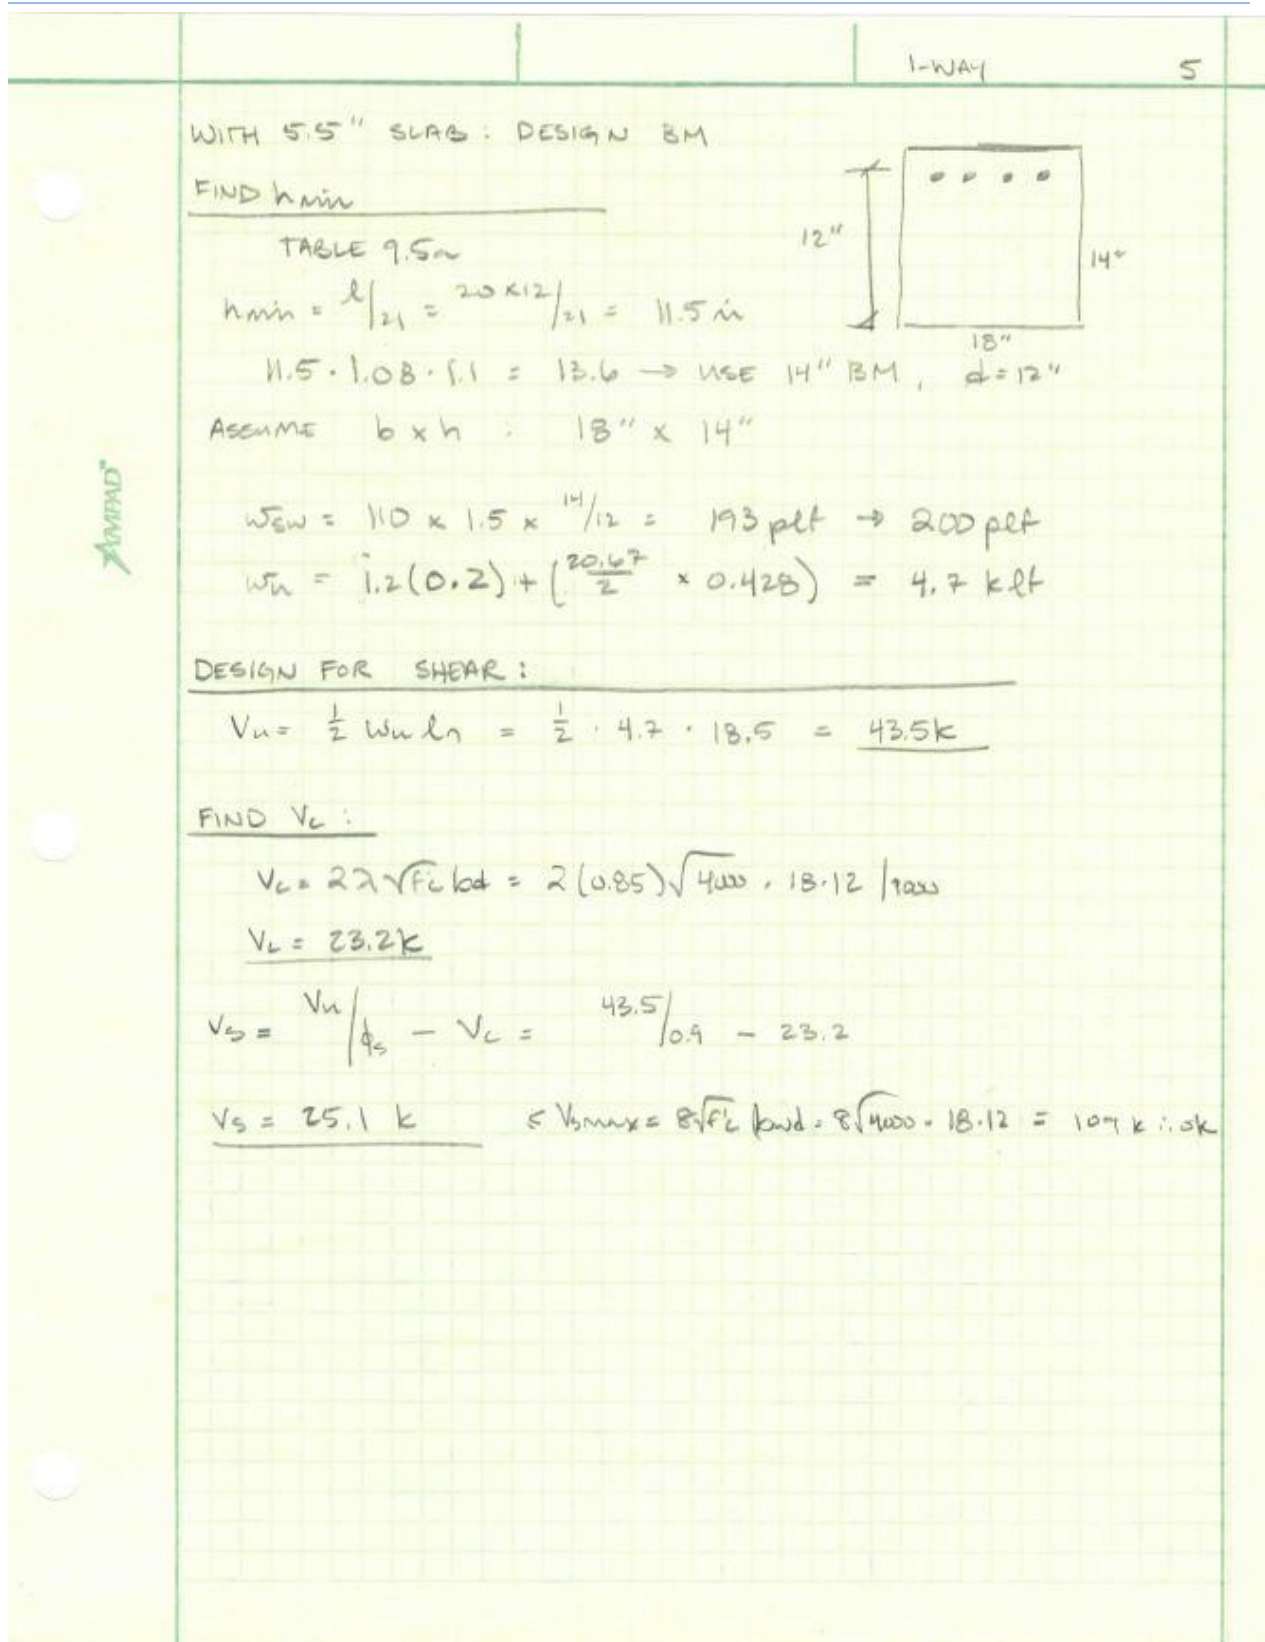 1-WAY 5
WITH 5.5" SLAB: DESIGN BM
FIND hmin
TABLE 9.5a
12"
14"
18"
hmin = l/21 = 20x12/21 = 11.5 in
11.5 · 1.08 · 1.1 = 13.6 → USE 14" BM, d=12"
ASSUME b x h : 18" x 14"
AMPAD™
wsw = 110 x 1.5 x 14/12 = 193 plf → 200 plf
wu = 1.2(0.2) + (20.67/2 x 0.428) = 4.7 klf
DESIGN FOR SHEAR:
Vu = 1/2 wu ln = 1/2 · 4.7 · 18.5 = 43.5k
FIND Vc:
Vc = 2λ√f'c bd = 2(0.85)√4000 · 18·12 /1000
Vc = 23.2k
Vs = Vu/ϕs - Vc = 43.5/0.9 - 23.2
Vs = 25.1 k ≤ Vsmax = 8√f'c bwd = 8√4000 · 18·12 = 109 k ∴ ok